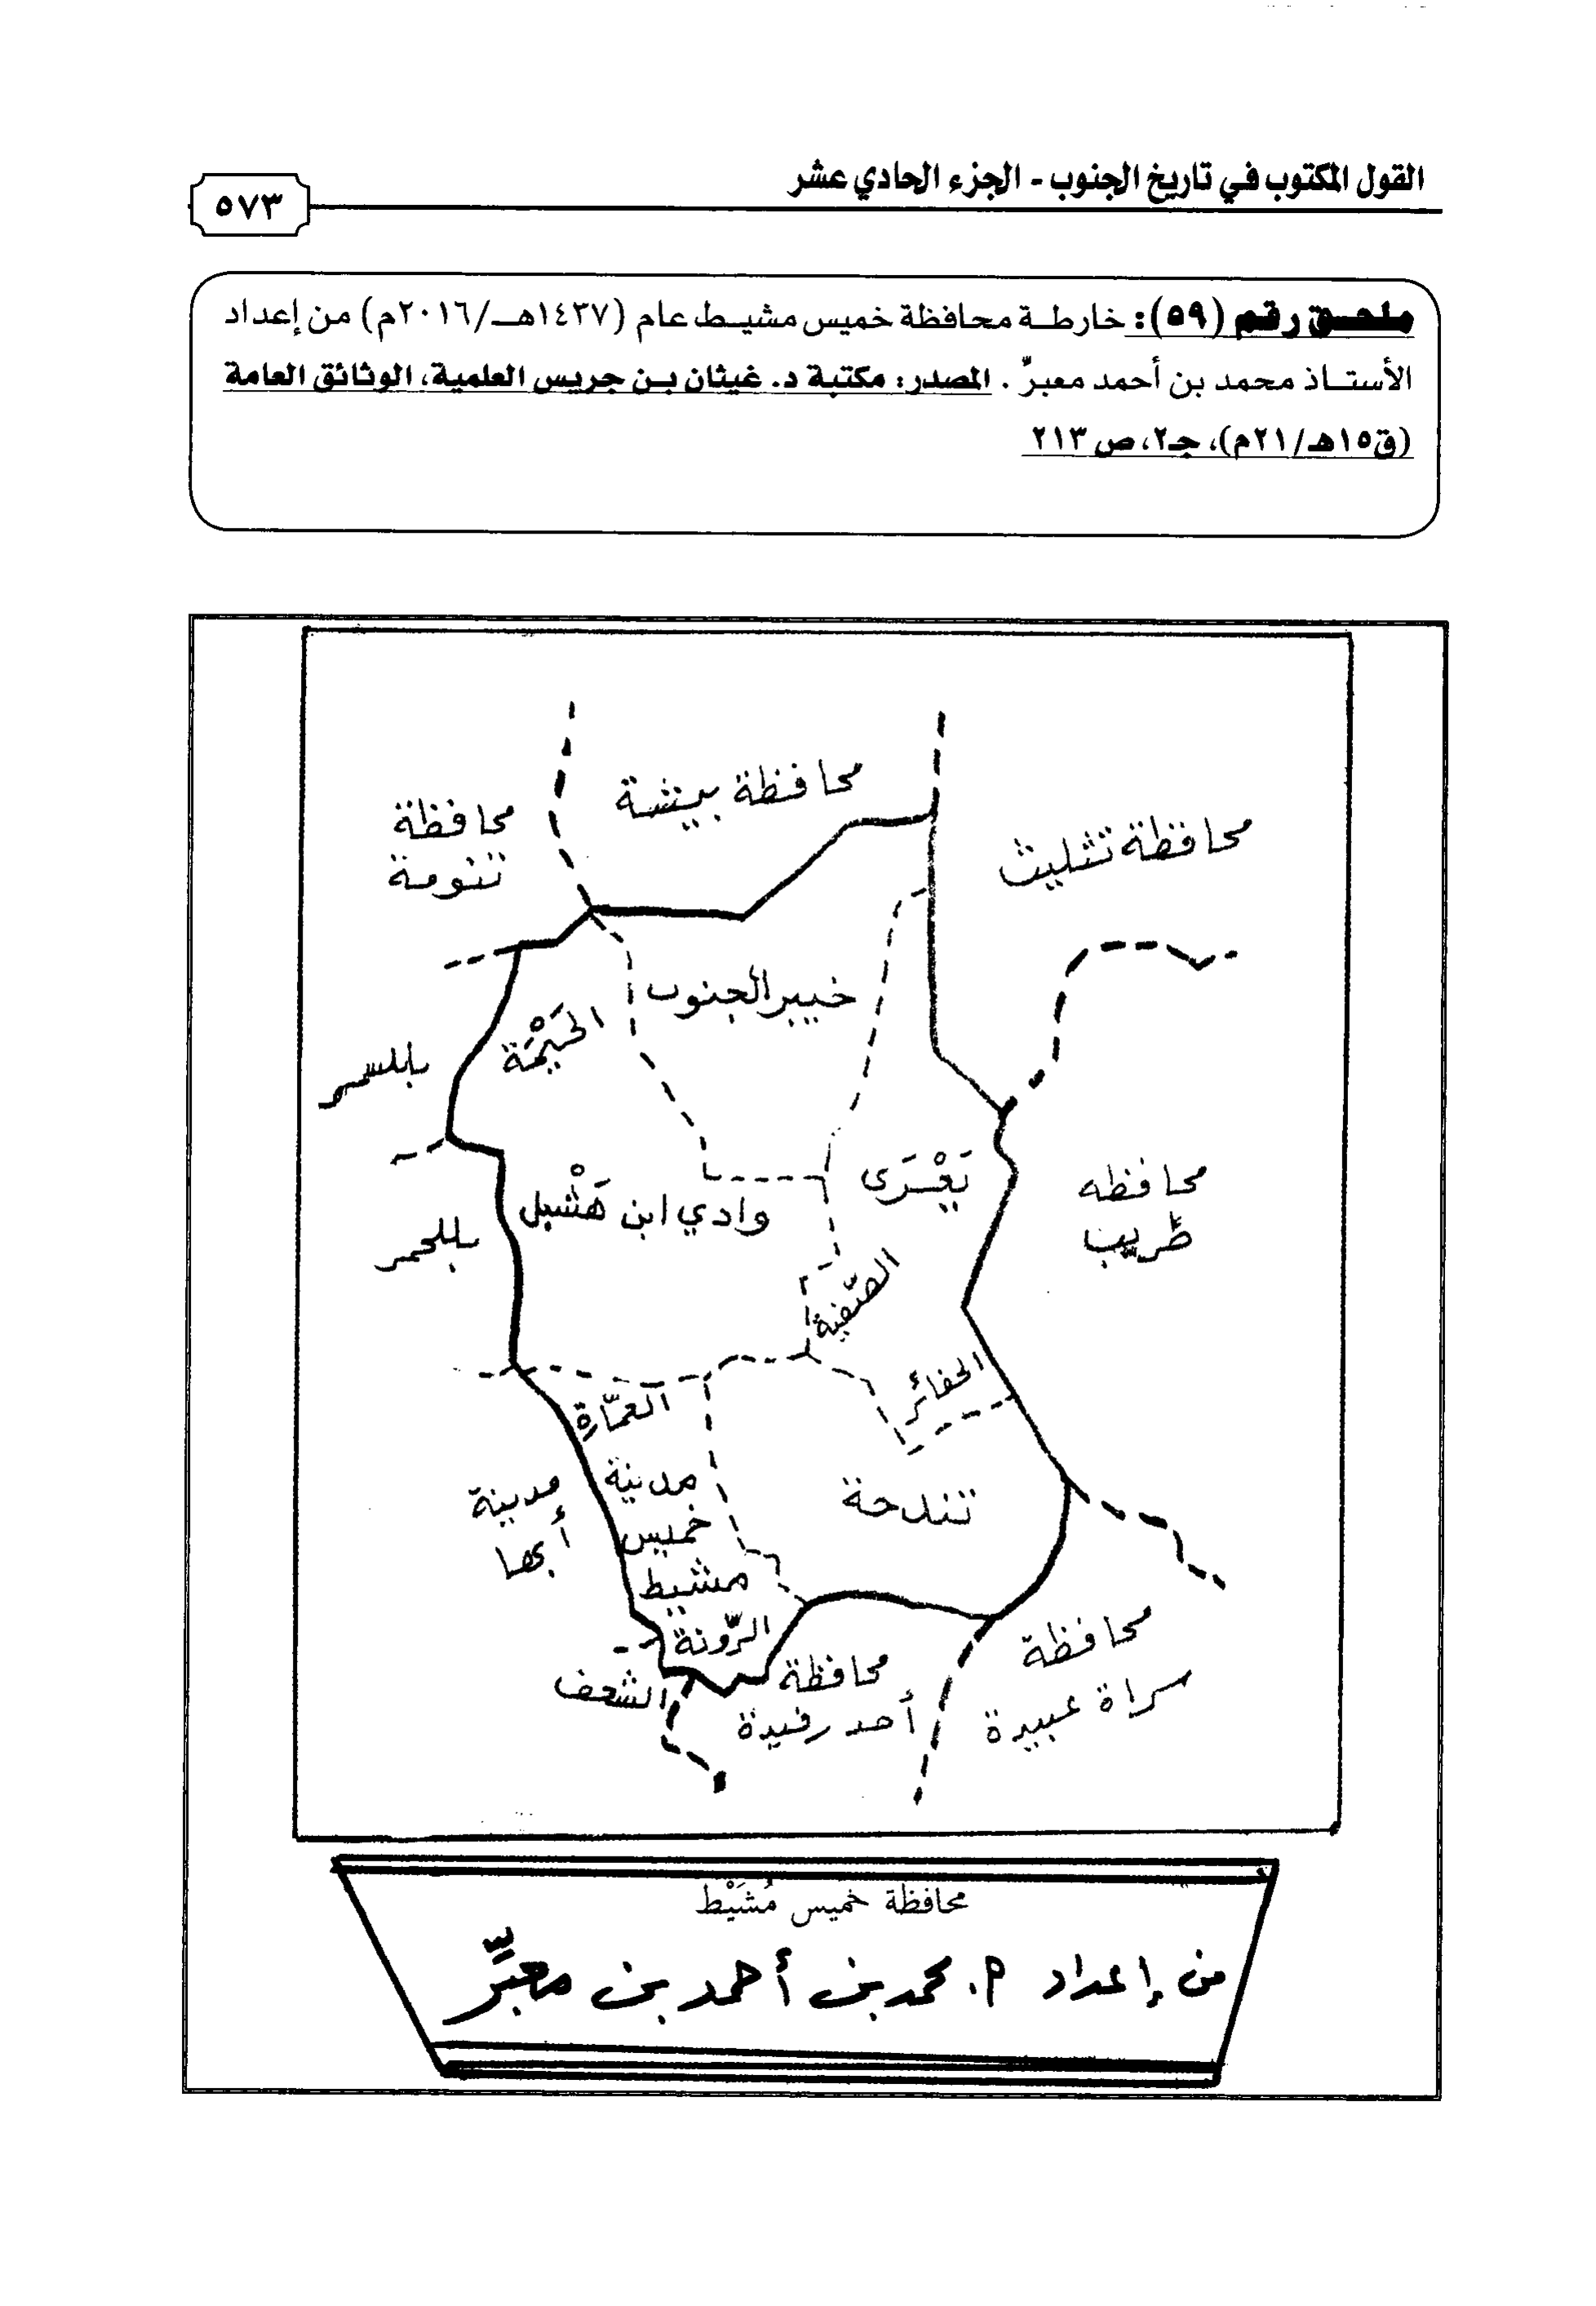 القول المكتوب في تاريخ الجنوب - الجزء الحادي عشر
٥٧٣
ملحق رقم (٥٩): خارطة محافظة خميس مشيط عام (١٤٣٧هـ/٢٠١٦م) من إعداد
الأستاذ محمد بن أحمد معبرّ. المصدر: مكتبة د. غيثان بن جريس العلمية، الوثائق العامة
(ق١٥هـ/٢١م)، جـ٢، ص ٢١٣
محافظة بيشة
محافظة
تنومة
محافظة تثليث
خيبر الجنوب
الحَيْمَة
بللسمر
يَعْرَى
محافظه
طريب
وادي ابن هَشْبل
بللحمر
الصّفية
الحفائر
العمّارة
مدينة
خميس
مشيط
تندحة
مدينة
أبها
الرّونة
الشعف
محافظة
أحد رفيدة
محافظة
سراة عبيدة
محافظة خميس مُشَيْط
من إعداد م. محمد بن أحمد بن معبّر